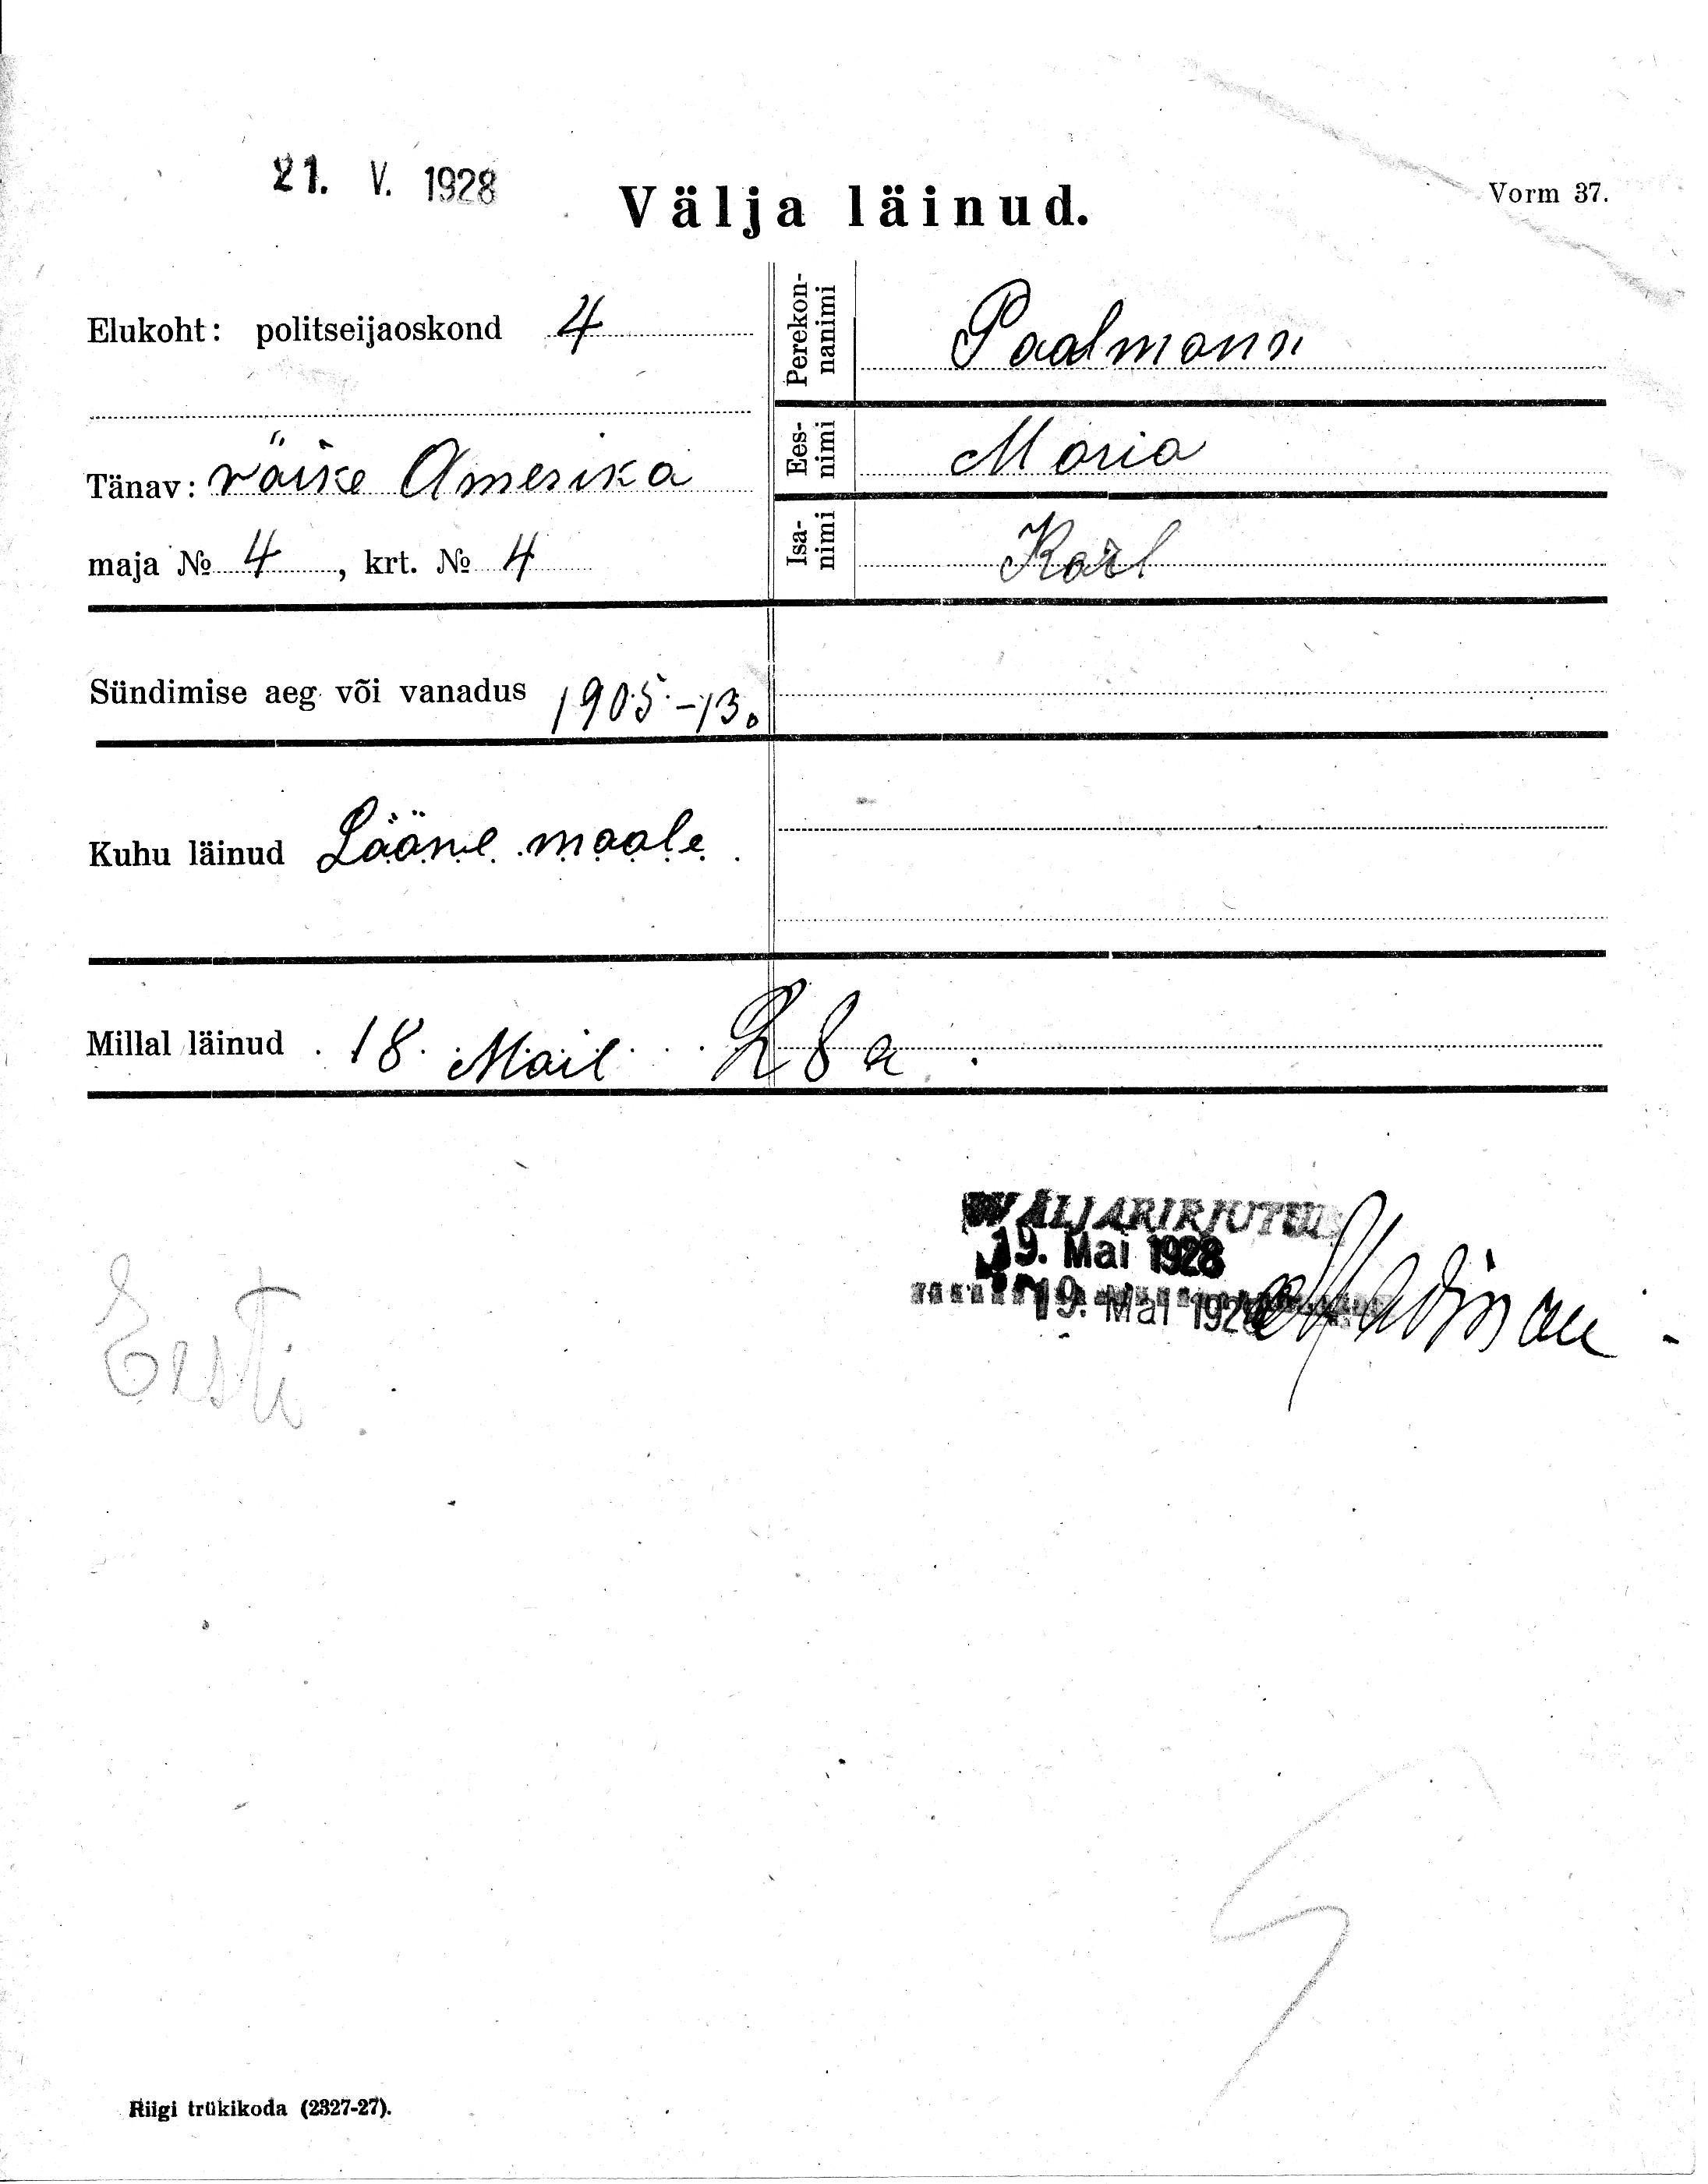 21. V. 1928
Välja läinud.
Vorm 37.
Elukoht: politseijaoskond 4
Tänav: väike Amerika
maja № 4, krt. № 4
Perekon-
nanimi
Paalmann
Ees-
nimi
Maria
Isa-
nimi
Karl
Sündimise aeg või vanadus 1905-13.
Kuhu läinud Lääne maale.
Millal läinud 18. Mail 28 a.
VÄLJAKIRJUTUD
19. Mai 1928
19. Mai 1928
Eesti
Riigi trükikoda (2327-27).